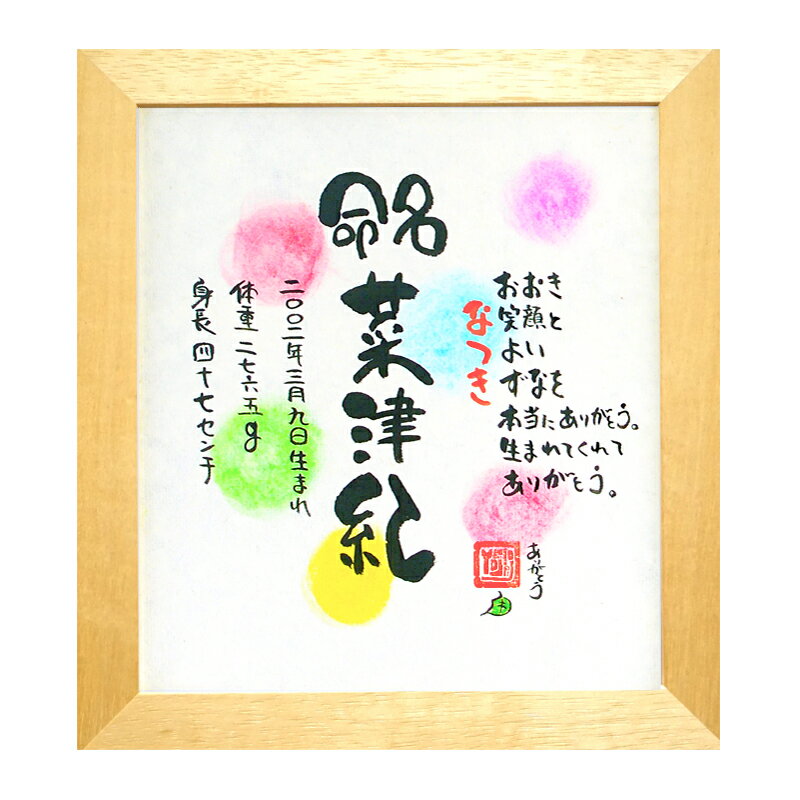 命名
菜津紀
なつき
おおき
お笑顔と
よい
ずなを
本当にありがとう。
生まれてくれて
ありがとう。
二〇〇二年三月九日生まれ
体重二七六五g
身長四十七センチ
あがとう